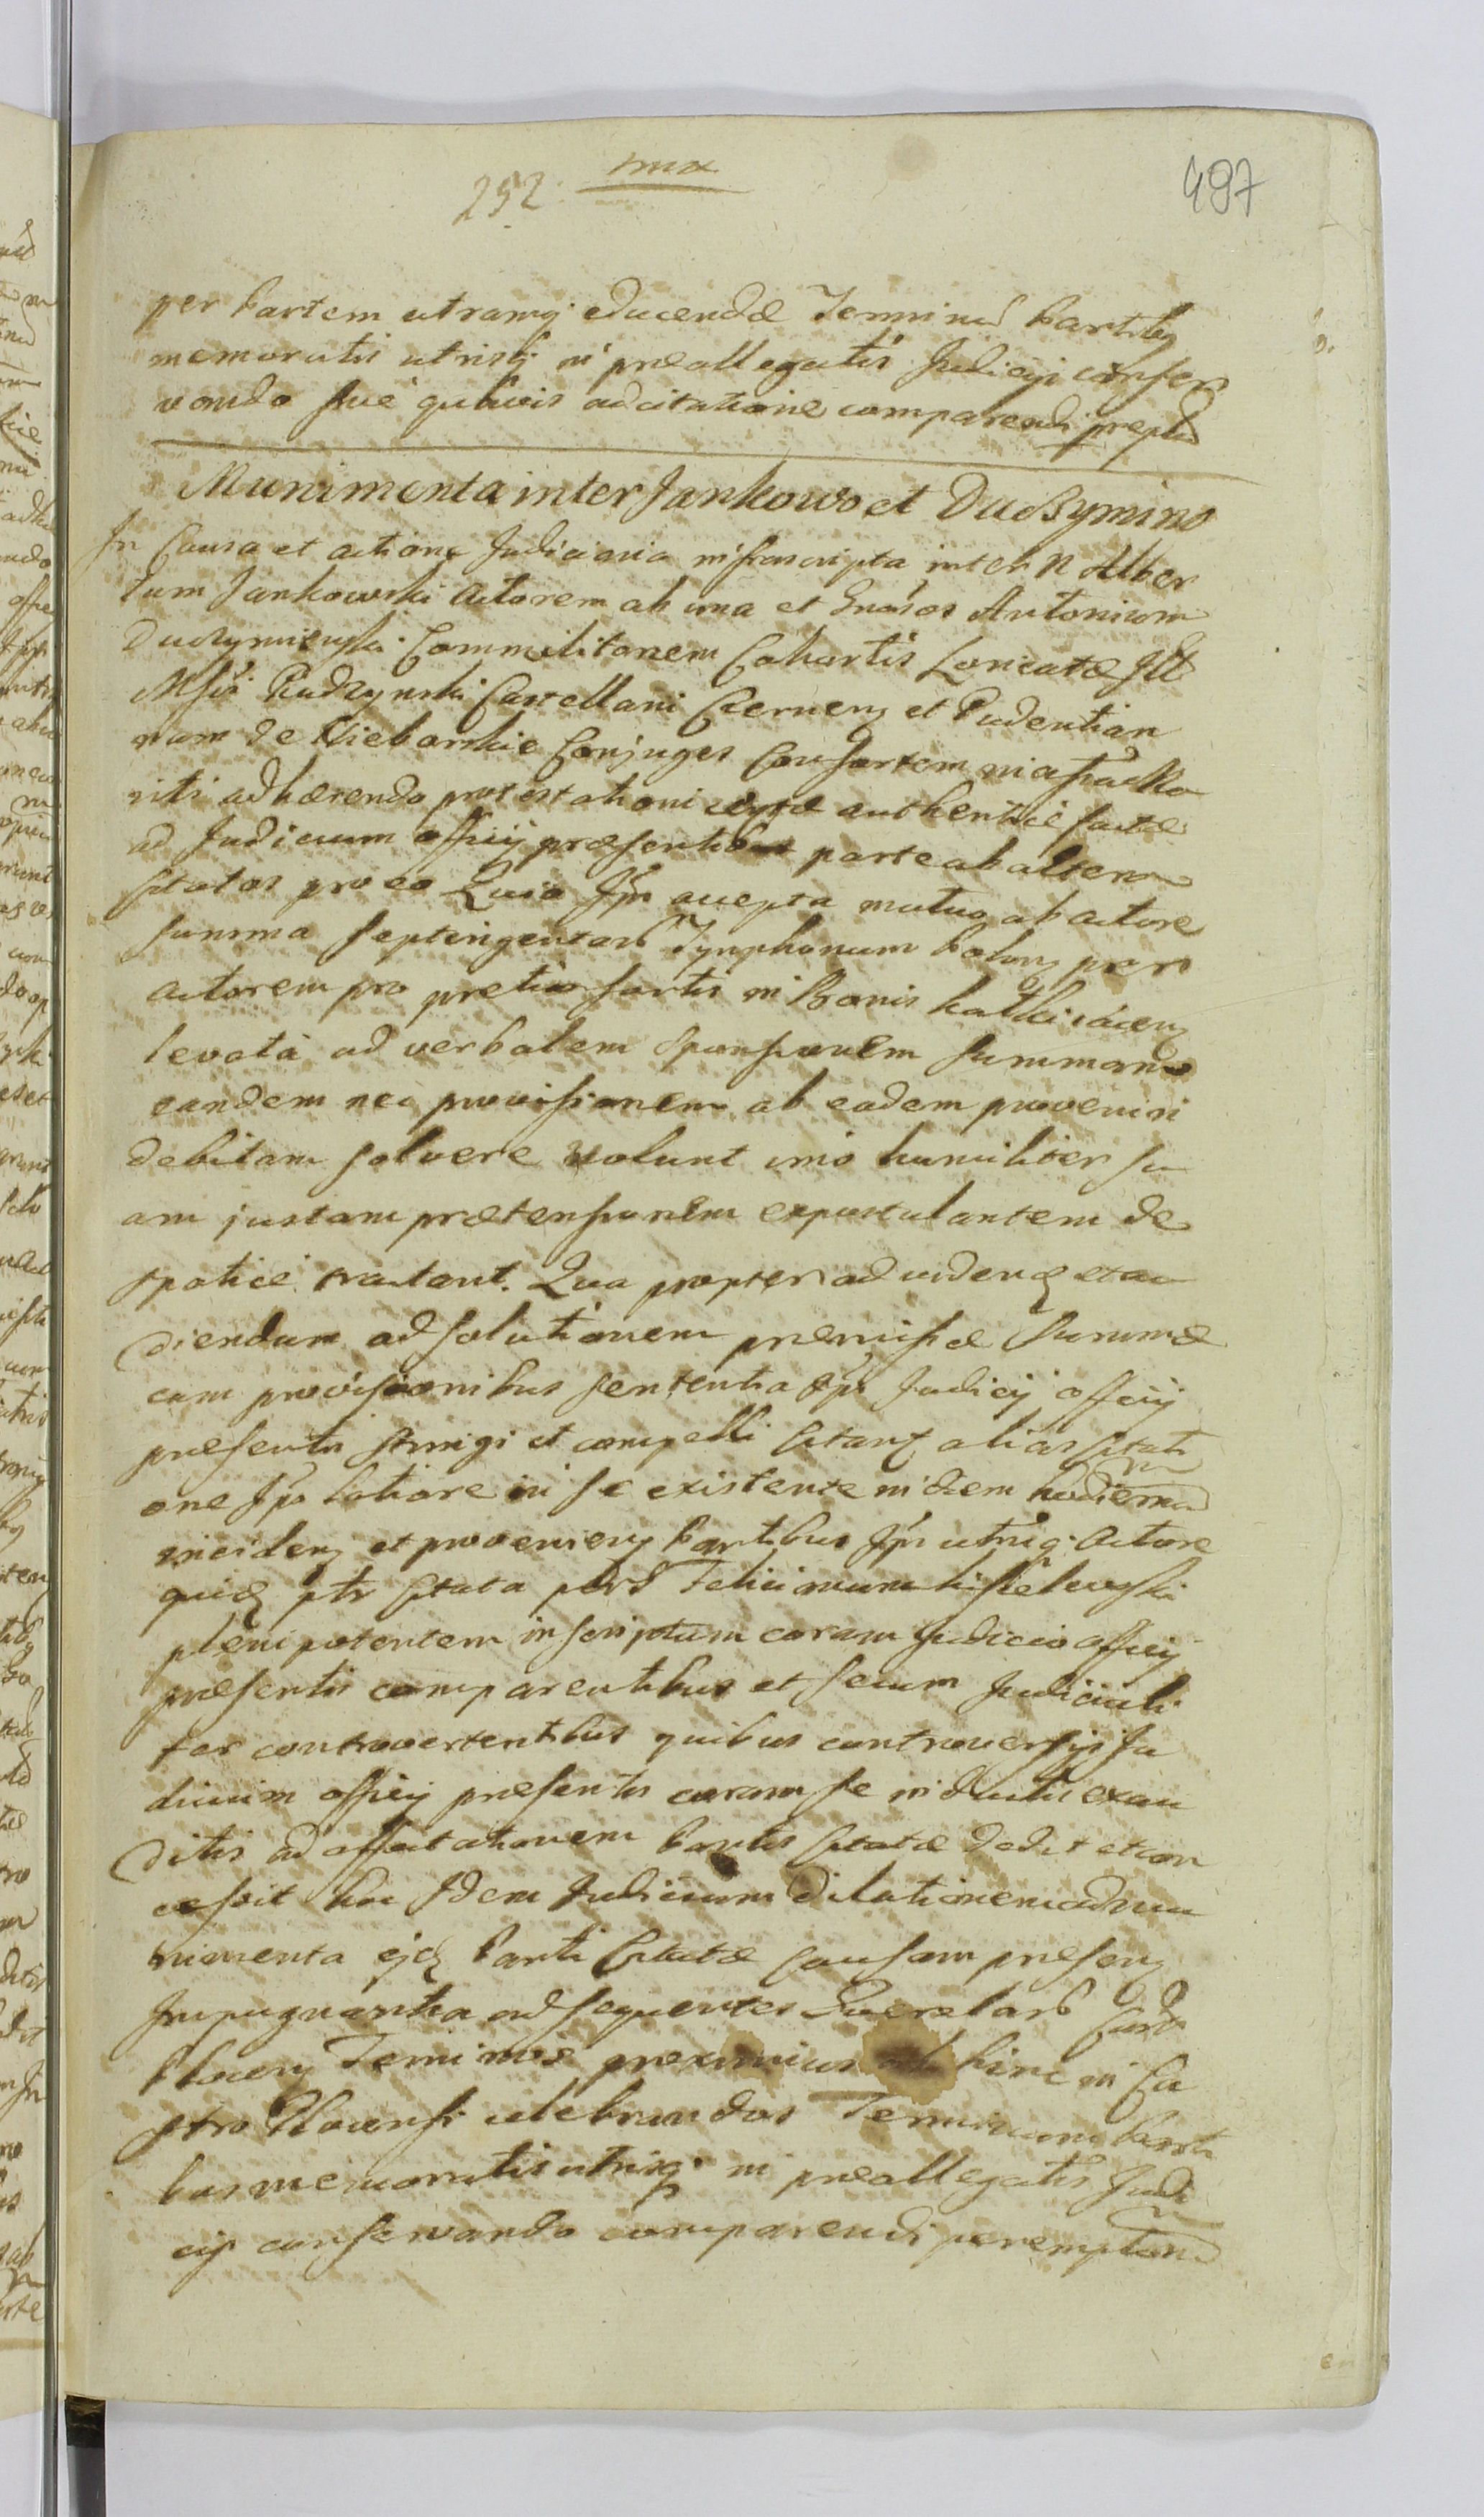 252.
497
per Partem utramq educendæ Terminũ Partibq
memoratis utrisq in præallegatis Judicijs conser
vando sine quavis adcitatione comparendi
Munimenta inter Jankows et Duczymins
In Causa et actione Judiciaria infrascripta inter N Alber
tum Jankowski Actorem ab una et Gnosos Antonium
Duczyminski Commilitonem Cohortis Loricatæ Ill
Msci Rudzynski Castellani Czernens et Pudentian
nam de Conjuges Consortem in
riti adhærendo protestationi authentice factæ
ad Judicium Officij præsentis parte ab altera
Citatos pro eo Quia Ipsi accepta mutuo ab actore
summa septingentarũ Tynphonum Polons per
actorem pro pretio sortis in Bonis
levata ad verbalem sponsionem summam
eandem nec provisionem ab eadem proveniri
debitam solvere nolunt imo humiliter su
am justam prætensionem expostulantem de
spotice tractant. Qua propter ad videndũ et au
diendum ad solutionem præmissæ Summæ
cum provisionibus sententia Judicij Officij
præsentis stringi et compelli Citant alias Citati
one Ipsa latiore in se existente in diem hodiernũ
inciden et provenien Partibus Ipsis utrisq Actore
quidẽ Citata per Felicianum
plenipotentem inscriptum coram Judicio Officij
præsentis comparentibus et secum Judiciali
ter controvertentibus quibus controversijs Ju
dicium Officij præsentis coram se inductis exau
ditis ad affectationem Partis Citatæ dedit et con
cessit hoc Idem Judicium dilationem ad mu
nimenta Parti Citatæ Causam præsen
Impugnantia ad sequentes Querelarũ
Terminos proximius ab hinc in Ca
stro celebrandos Terminum Parti
bus memoratis utrisq in præallegatis Judi
cijs conservando comparendi peremptoriũ